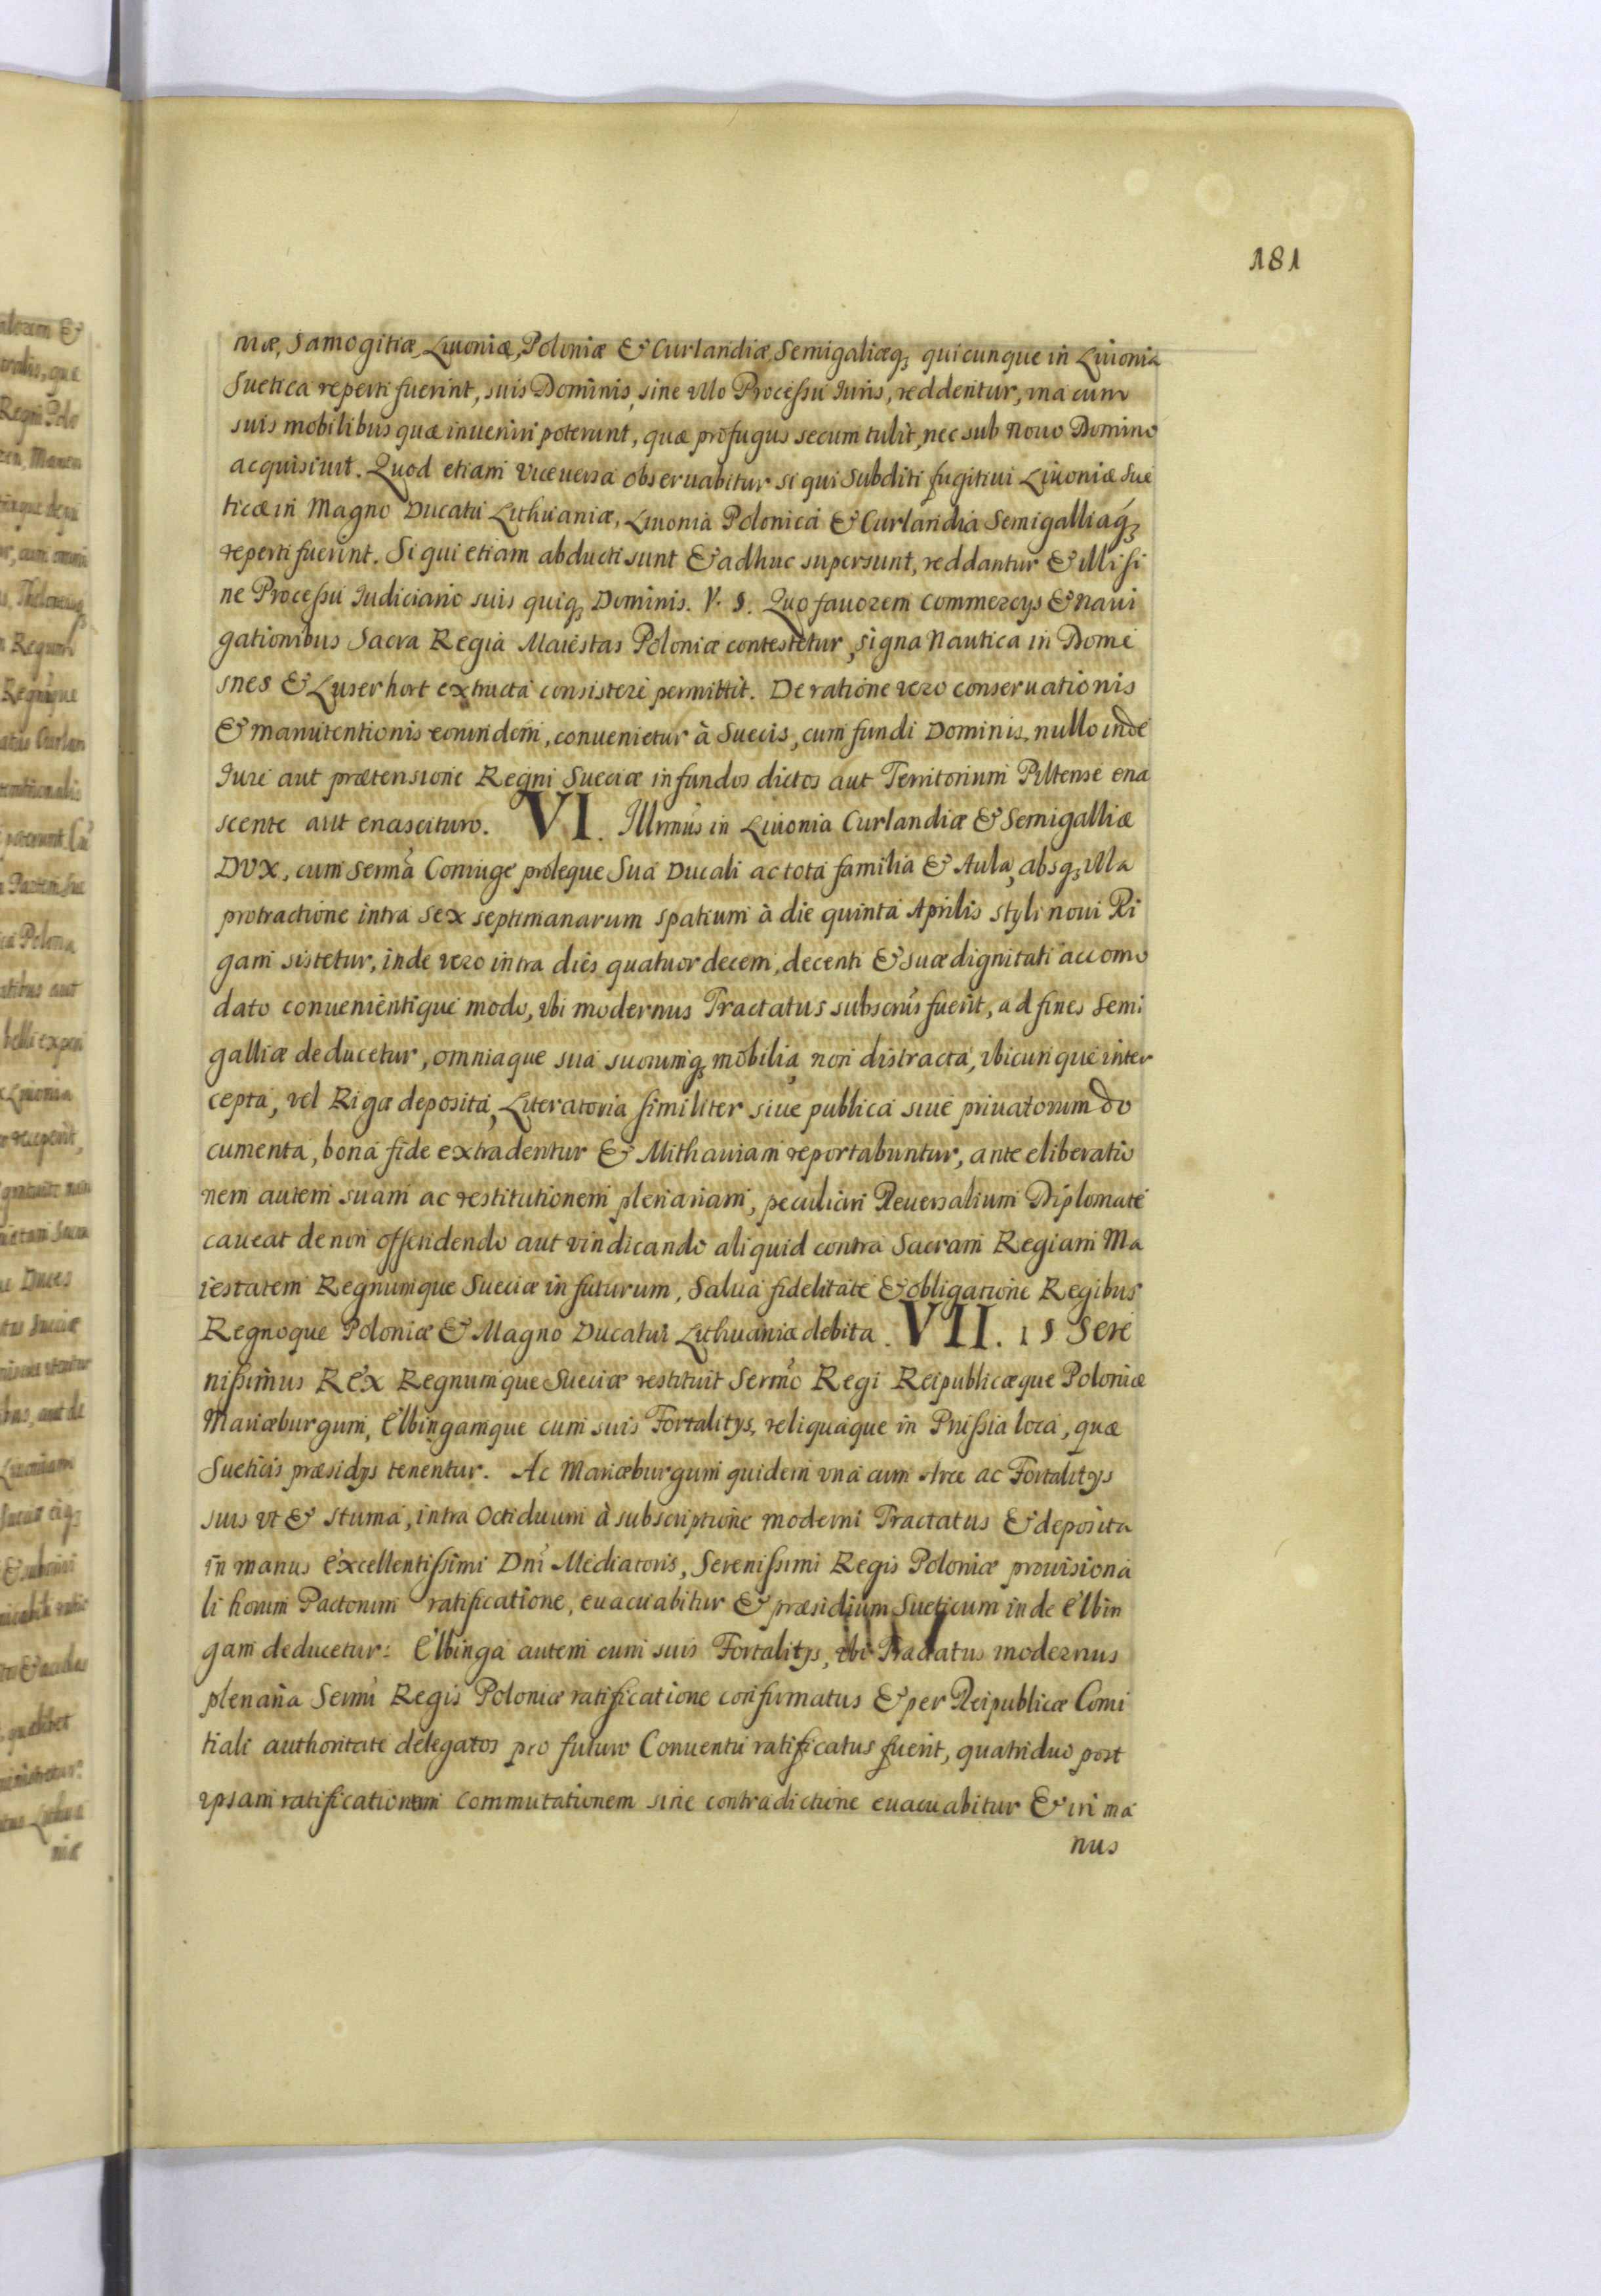 181
niæ, Samogitiæ, Liuoniæ, Poloniæ & Curlandiæ, Semigaliæq; quicunque in Liuonia
Suetica reperti fuerint, suis Dominis, sine vllo Processu Iuris, reddentur, vna cum
suis mobilibus quæ inueniri poterunt, quæ profugus secum tulit, nec sub nouo Domino
acquisiuit. Quod etiam viceuersa obseruabitur si qui Subditi fugitiui Liuoniæ Sue
ticæ in Magno Ducatu Lithuaniæ, Liuonia Polonica & Curlandia Semigalliaq;
reperti fuerint. Si qui etiam abducti sunt & adhuc supersunt, reddantur & illi si
ne Processu Iudiciario suis quiq; Dominis. V. §. Quo fauorem commercys & naui
gationibus Sacra Regia Maiestas Poloniæ contestetur, signa Nautica in Dome
snes & Luserhort extructa consistere permittit. De ratione vero conseruationis
& manutentionis eorundem, conuenietur à Suecis, cum fundi Dominis, nullo inde
Iure aut prætensione Regni Sueciæ in fundos dictos aut Territorium Piltense ena
scente aut enascituro. VI. Illrmus in Liuonia Curlandiæ & Semigalliæ
DVX, cum Serma Coniuge proleque Sua Ducali ac tota familia & Aula, absq; vlla
protractione intra sex septimanarum spatium à die quinta Aprilis styli noui Ri
gam sistetur, inde vero intra dies quatuordecem, decenti & suæ dignitati accomo
dato conuenientique modo, vbi modernus Tractatus subscrus fuerit, ad fines Semi
galliæ deducetur, omniaque sua suorumq; mobilia non distracta, vbicunque inter
cepta, vel Rigæ deposita, Literatoria similiter siue publica siue priuatorum do
cumenta, bona fide extradentur & Mithauiam reportabuntur, ante eliberatio
nem autem suam ac restitutionem plenariam, peculiari Reuersalium Diplomate
caveat de non offendendo aut vindicando aliquid contra Sacram Regiam Ma
iestatem Regnumque Sueciæ in futurum, Salua fidelitate & obligatione Regibus
Regnoque Poloniæ & Magno Ducatui Lithuaniæ debita. VII. 1 § Sere
nissimus REX Regnumque Sueciæ restituit Sermo Regi Reipublicæque Poloniæ
Mariæburgum, Elbingamque cum suis Fortalitys, reliquaque in Prussia loca, quæ
Sueticis præsidys tenentur. Ac Mariæburgum quidem vna cum Arce ac Fortalitys
suis vt & Stuma, intra Octiduum à subscriptione moderni Tractatus & deposita
in manus Excellentissimi Dni Mediatoris, Serenissimi Regis Poloniæ prouisiona
li horum Pactorum ratificatione, euacuabitur & præsidium Sueticum inde Elbin
gam deducetur: Elbinga autem cum suis Fortalitys, vbi Tractatus modernus
plenaria Sermi Regis Poloniæ ratificatione confirmatus & per Reipublicæ Comi
tiali authoritate delegatos pro futuro Conuentu ratificatus fuerit, quatriduo post
ipsam ratificationem commutationem sine contradictione euacuabitur & in ma
nus